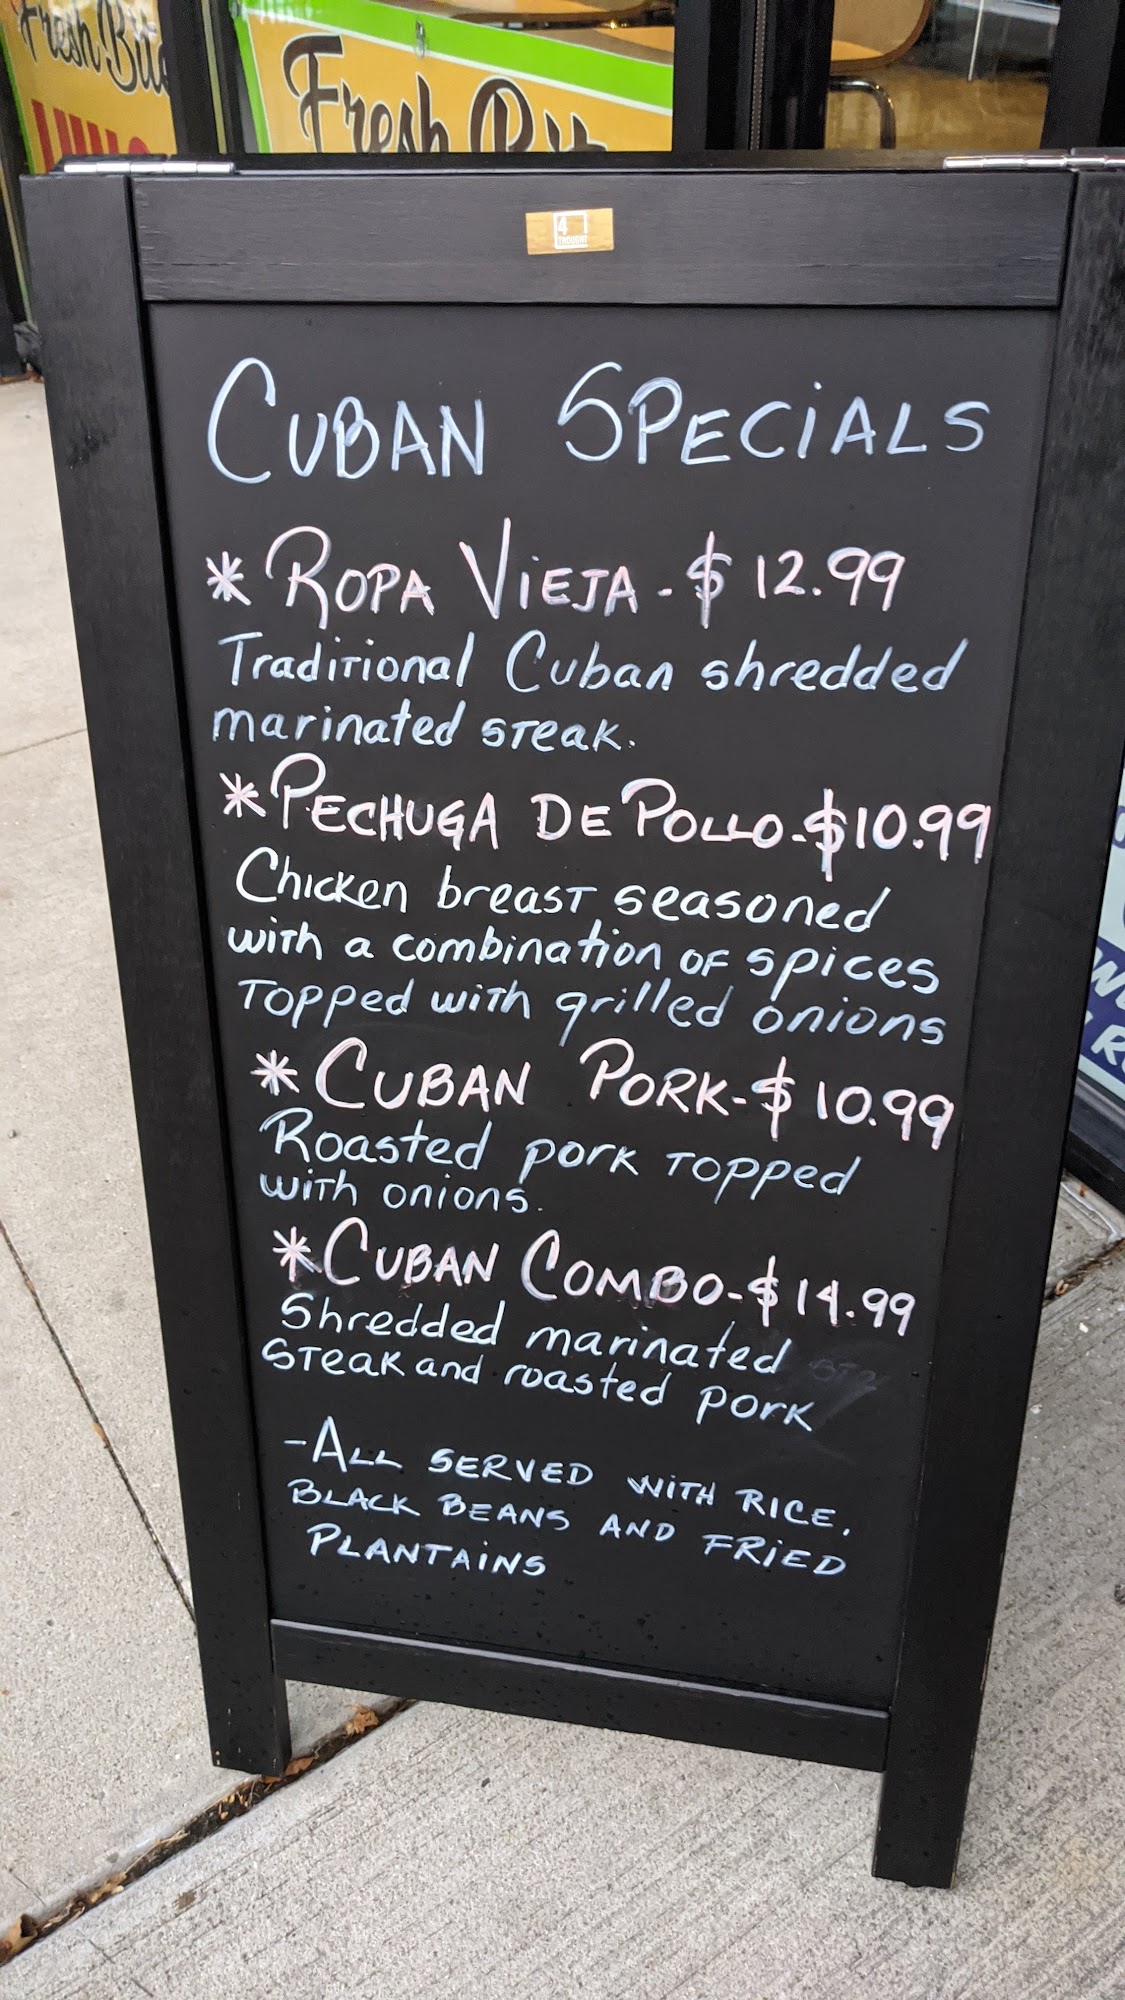 Fresh Bite
Fresh Bite
4
THOUGHT
CUBAN SPECiALS
* ROPA ViEJA - $ 12.99
Traditional Cuban shredded
marinated steak.
* PECHUGA DE POLLO - $10.99
Chicken breast seasoned
with a combination of spices
topped with grilled onions
* CUBAN PORK - $ 10.99
Roasted pork topped
with onions.
* CUBAN COMBO - $ 14.99
Shredded marinated
steak and roasted pork
- ALL SERVED WiTH RICE,
BLACK BEANS AND FRiED
PLANTAiNS